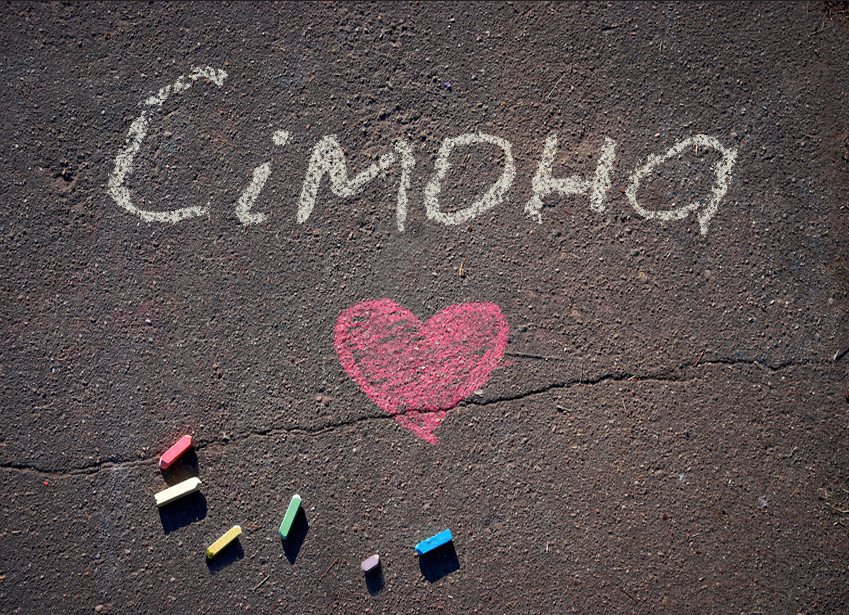 Сімона